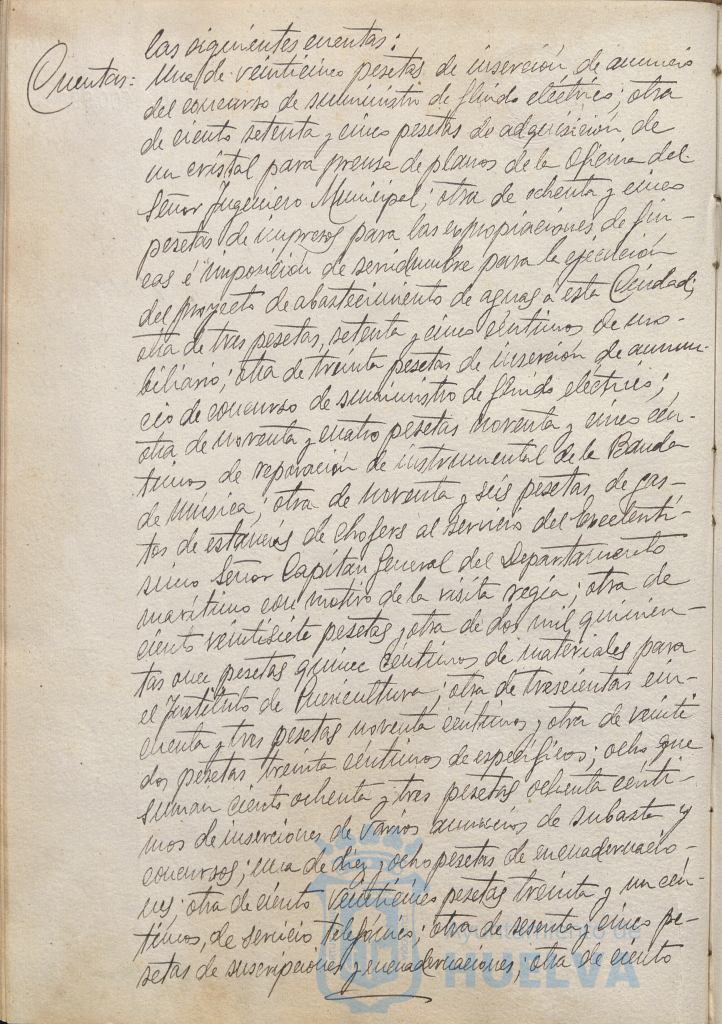 las siguientes cuentas:
Cuentas: Una de veinticinco pesetas de inserción de anuncio
del concurso de suministro de flúido eléctrico; otra
de ciento setenta y cinco pesetas de adquisición de
un cristal para prensa de planos de la Oficina del
Señor Ingeniero Municipal; otra de ochenta y cinco
pesetas de impresos para las expropiaciones de fin-
cas é imposición de servidumbre para la ejecución
del proyecto de abastecimiento de aguas a esta Ciudad;
otra de tres pesetas, setenta y cinco céntimos de mo-
biliario; otra de treinta pesetas de inserción de anun-
cio de concurso de suministro de flúido eléctrico;
otra de noventa y cuatro pesetas noventa y cinco cén-
timos de reparación de instrumental de la Banda
de música; otra de noventa y seis pesetas de gas-
tos de estancias de chofers al servicio del Excelentí-
simo Señor Capitán General del Departamento
marítimo con motivo de la visita regia; otra de
ciento veintisiete pesetas y otra de dos mil quinien-
tas once pesetas quince céntimos de materiales para
el Instituto de Puericultura; otra de trescientas cin-
cuenta y tres pesetas noventa céntimos y otra de veinti
dos pesetas treinta céntimos de específicos; ocho que
suman ciento ochenta y tres pesetas ochenta cénti-
mos de inserciones de varios anuncios de subasta y
concursos; una de diez y ocho pesetas de encuadernacio-
nes; otra de ciento veinticinco pesetas treinta y un cén-
timos, de servicio telefónico; otra de sesenta y cinco pe-
setas de suscripciones y encuadernaciones; otra de ciento
HUELVA